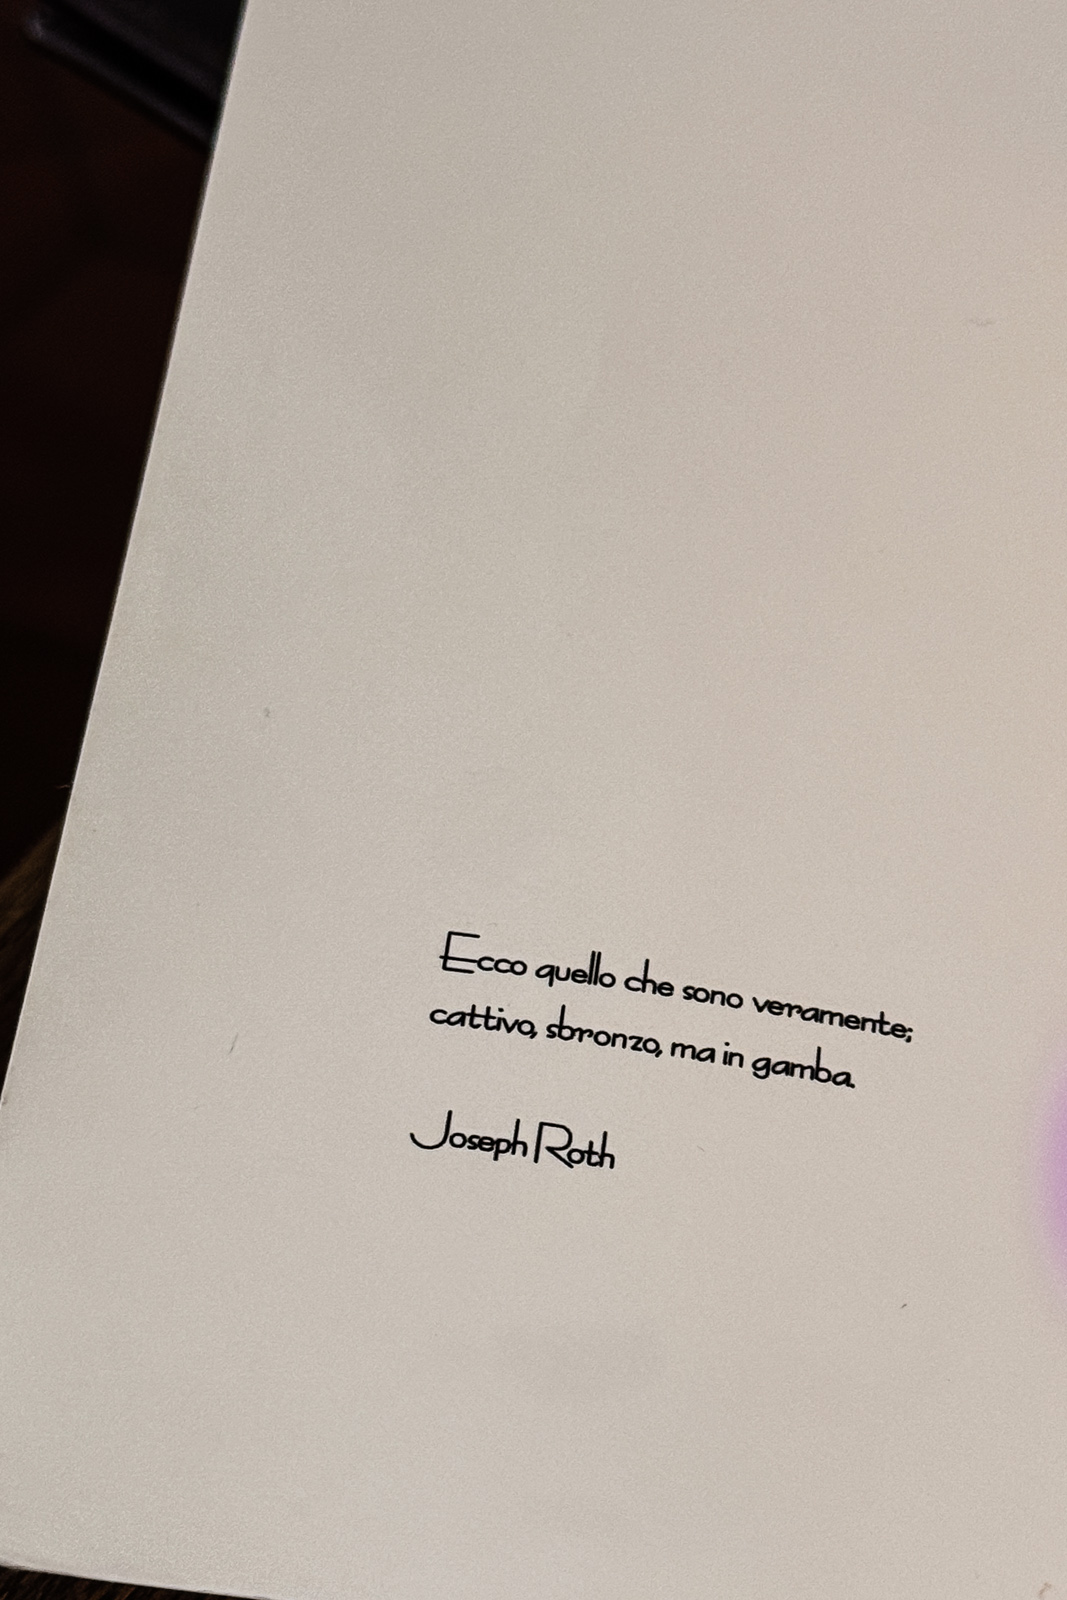 Ecco quello che sono veramente;
cattivo, sbronzo, ma in gamba.
Joseph Roth